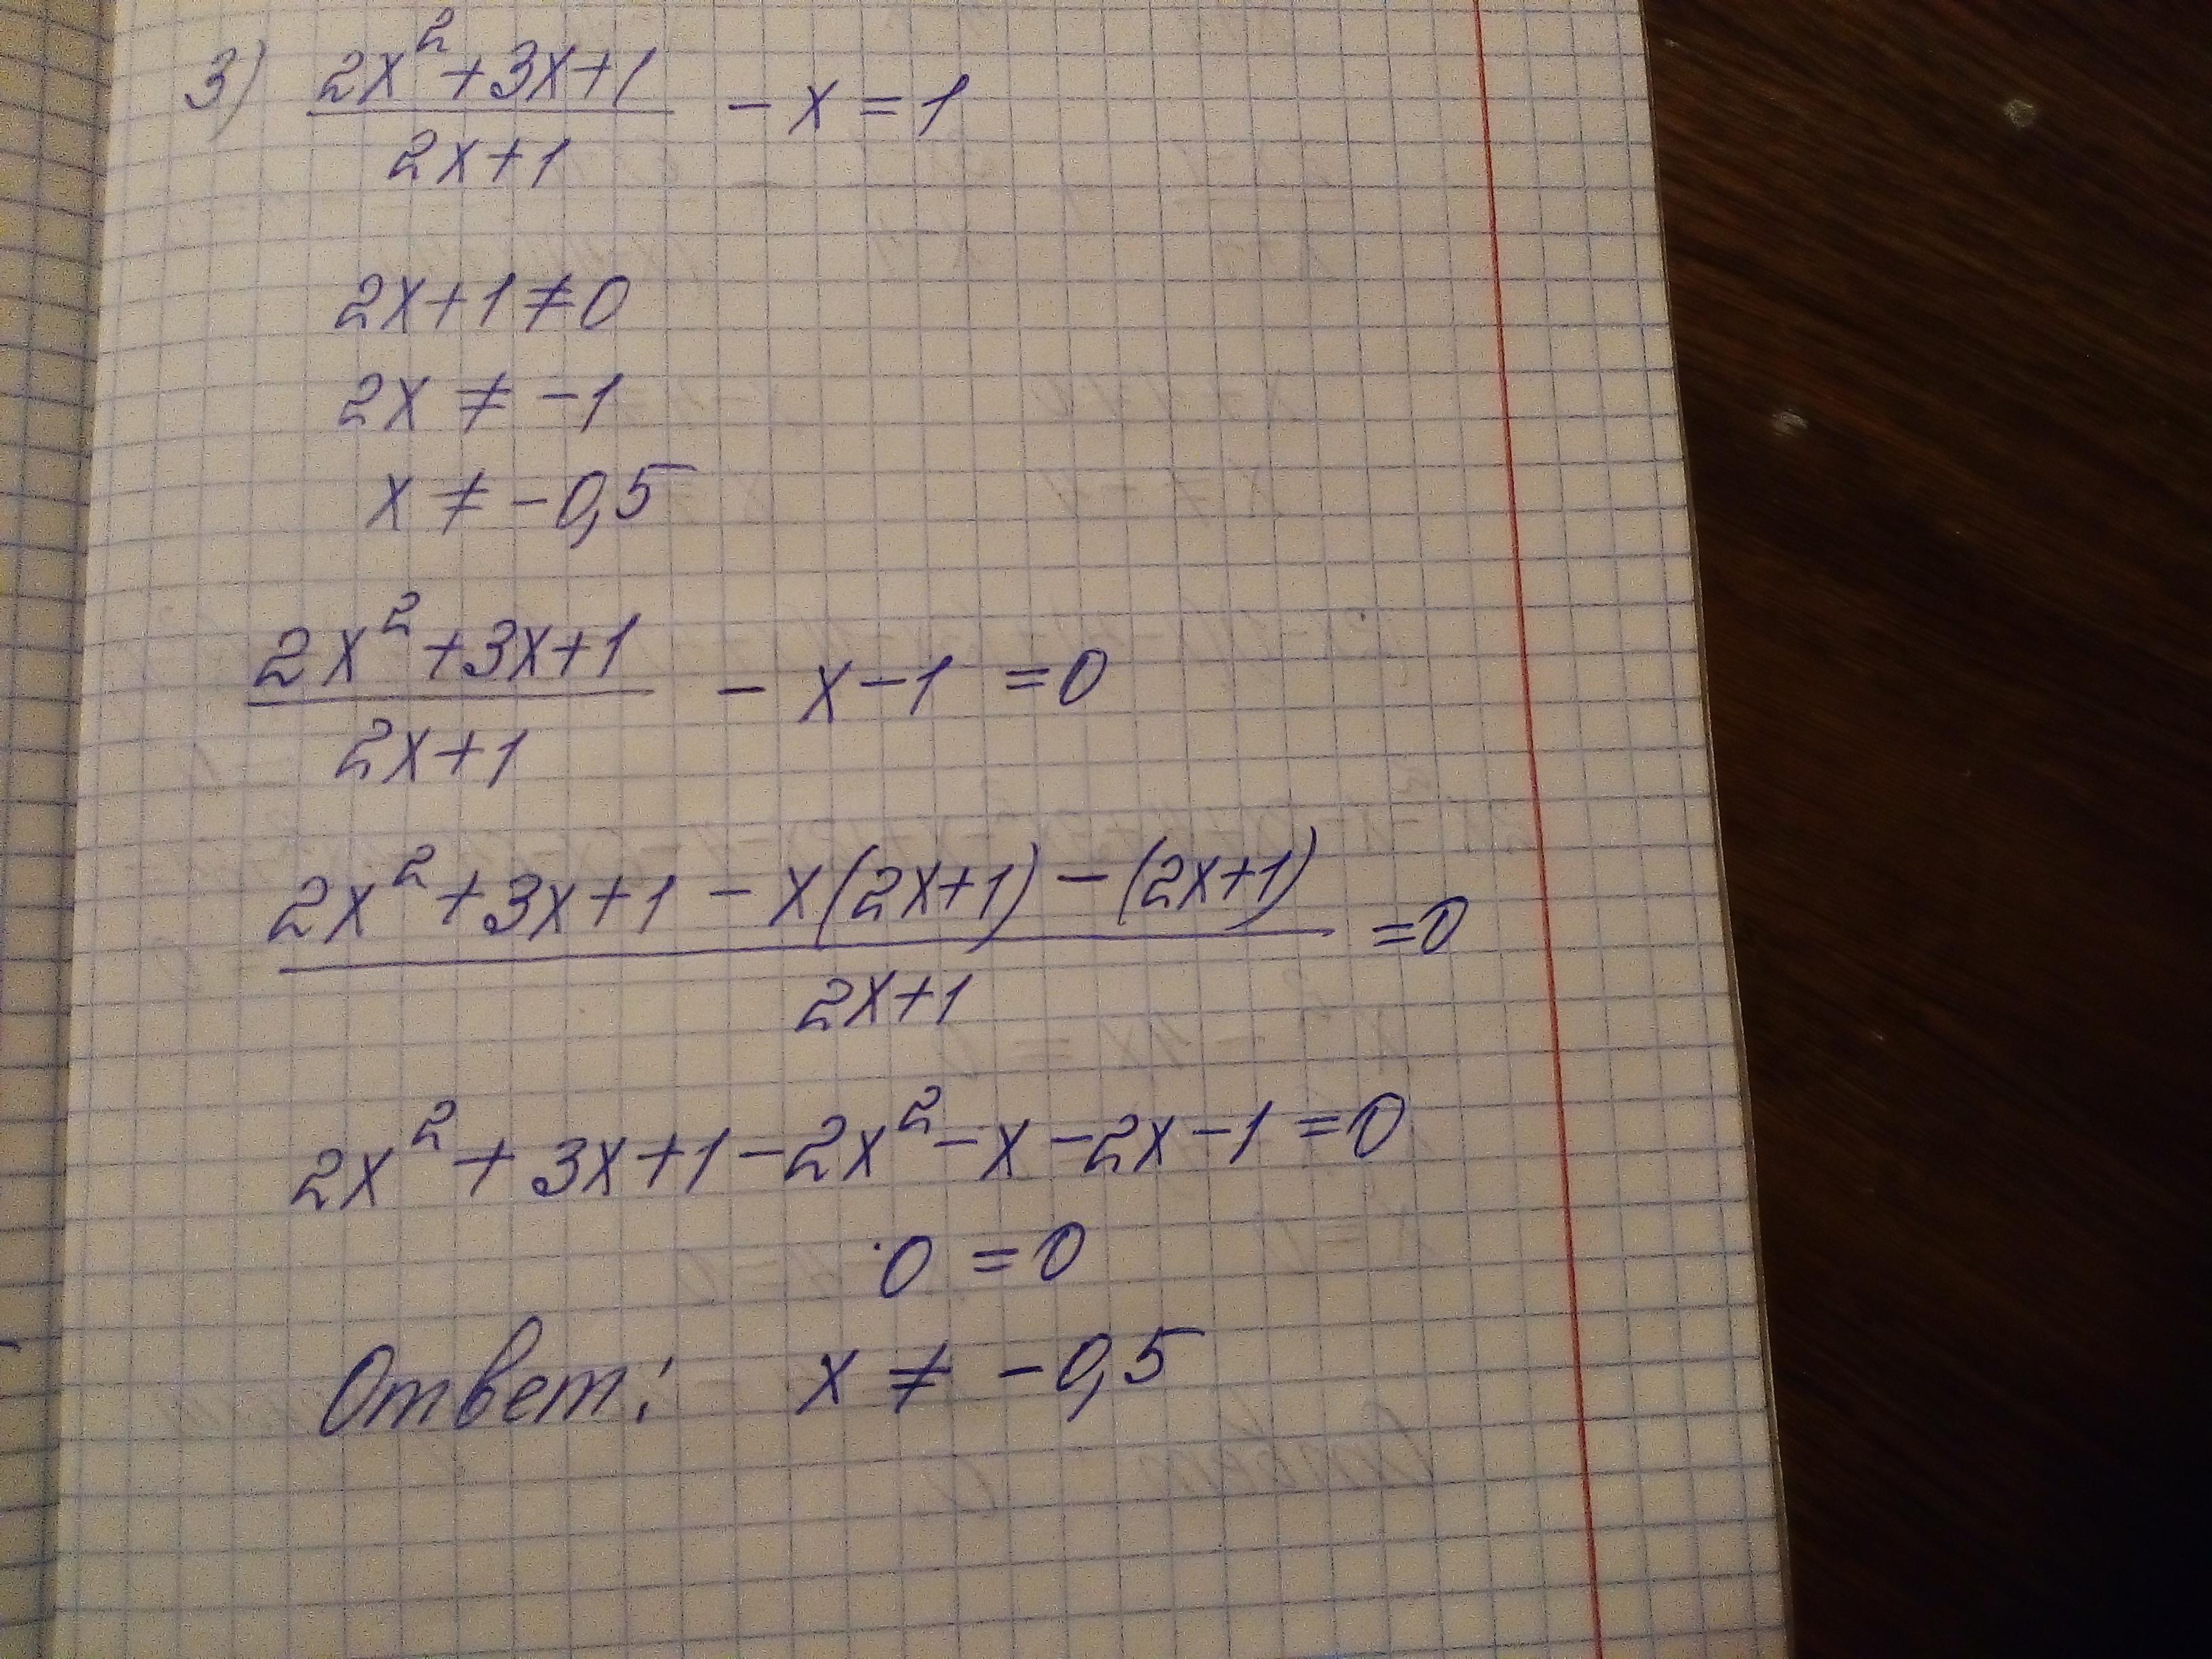 3) (2x²+3x+1)/(2x+1) - x = 1
2x+1≠0
2x ≠ -1
x ≠ -0,5
(2x²+3x+1)/(2x+1) - x - 1 = 0
(2x²+3x+1 - x(2x+1) - (2x+1))/(2x+1) = 0
2x²+3x+1-2x²-x-2x-1=0
0 = 0
Ответ: x ≠ -0,5